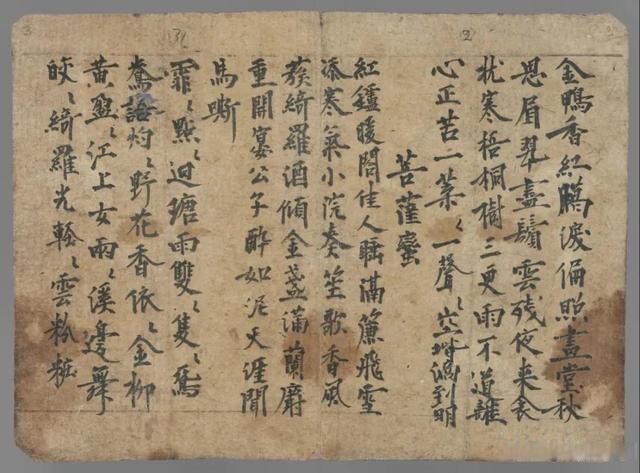 金鴨香紅臈淚偏照畫堂秋
思眉翠盡鬢雲殘夜来衾
枕寒梧桐樹三更雨不道離
心正苦二葉〻一聲〻空堦滴到明
菩薩蜜
紅鑪暖閤佳人睡滿簾飛雪
添寒氣小院奏笙歌香風
蔟綺羅酒傾金盞滿蘭麝
重開宴公子醉如泥天涯聞
馬嘶
霏〻點〻迴塘雨雙〻隻〻鴛
鴦語灼〻野花香依〻金柳
黄盈〻江上女兩〻溪邊舞
皎〻綺羅光輕〻雲粉粧